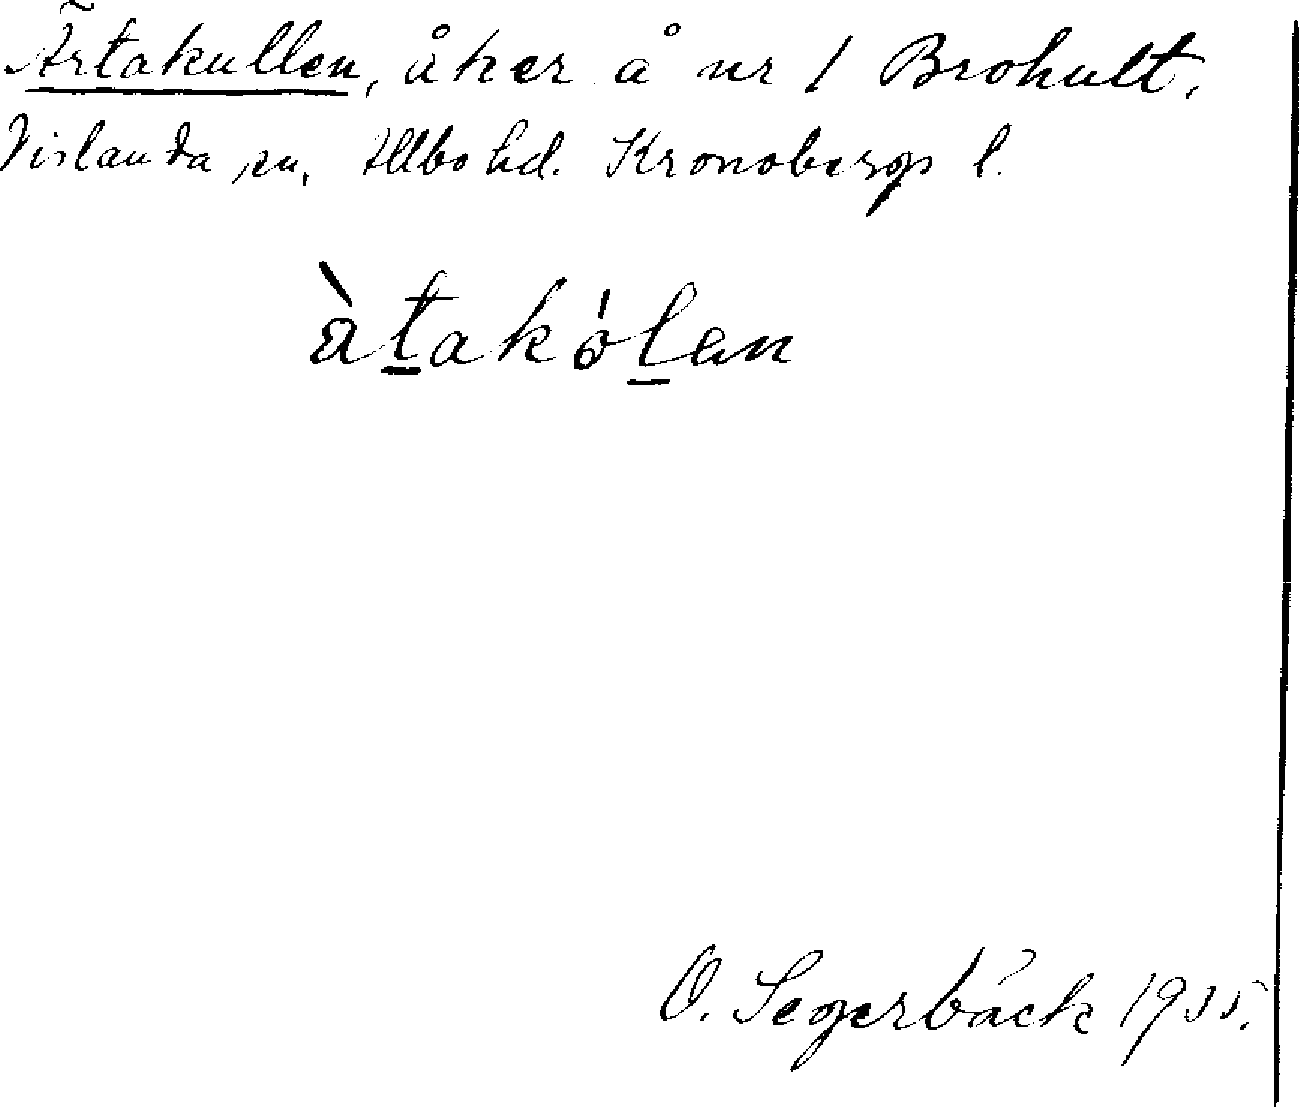 Ärtakullen, åker å nr 1 Brohult,
Vislanda sn, Allbo hd. Kronobergs l.
àtakólan
O. Segerbäck 1935.